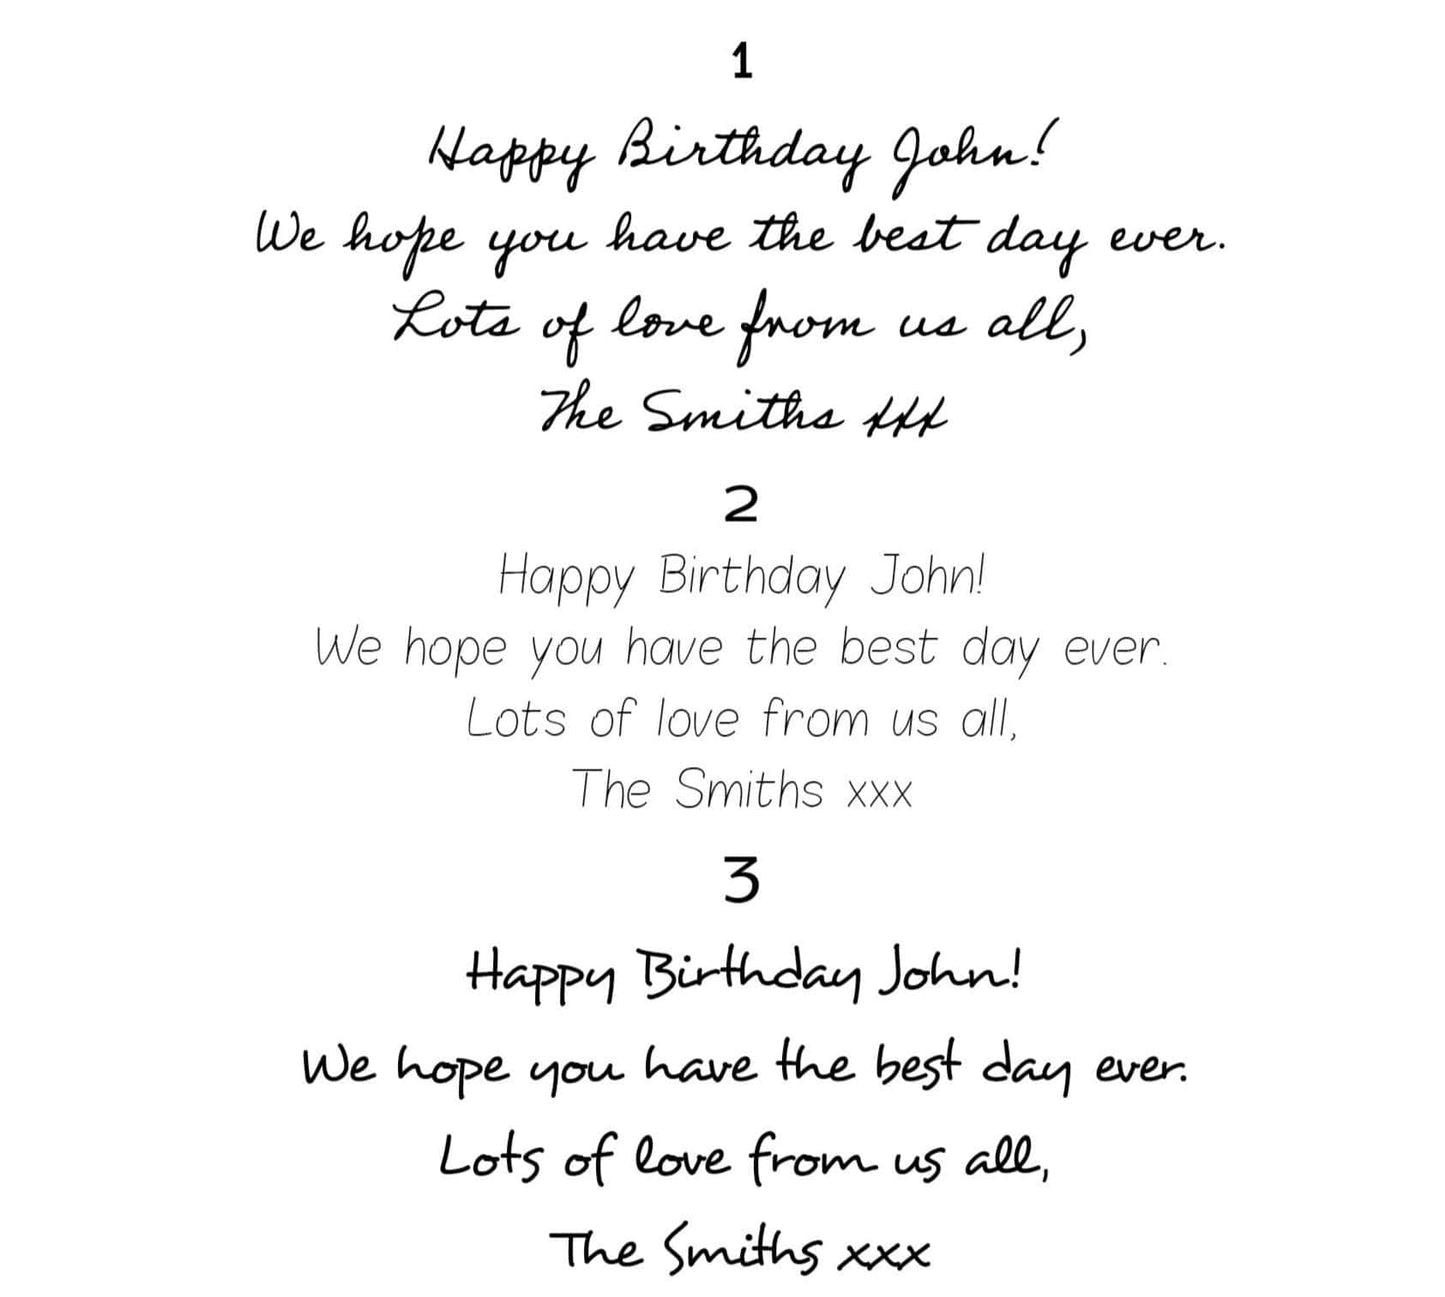 1
Happy Birthday John!
We hope you have the best day ever.
Lots of love from us all,
The Smiths xxx
2
Happy Birthday John!
We hope you have the best day ever.
Lots of love from us all,
The Smiths xxx
3
Happy Birthday John!
We hope you have the best day ever.
Lots of love from us all,
The Smiths xxx